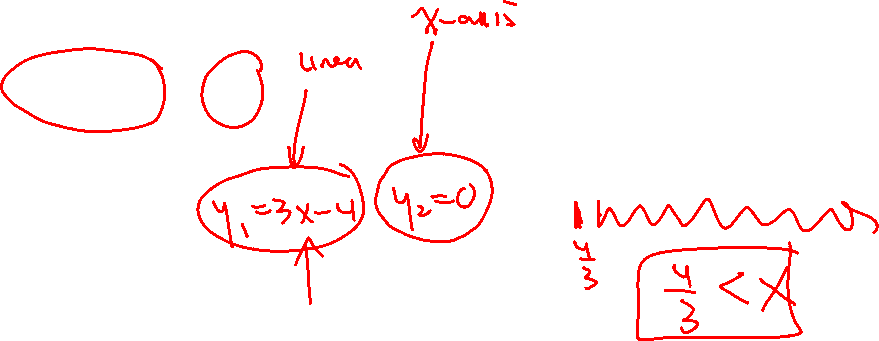 x-axis
linear
y₁=3x-4
y₂=0
4/3
4/3 < x